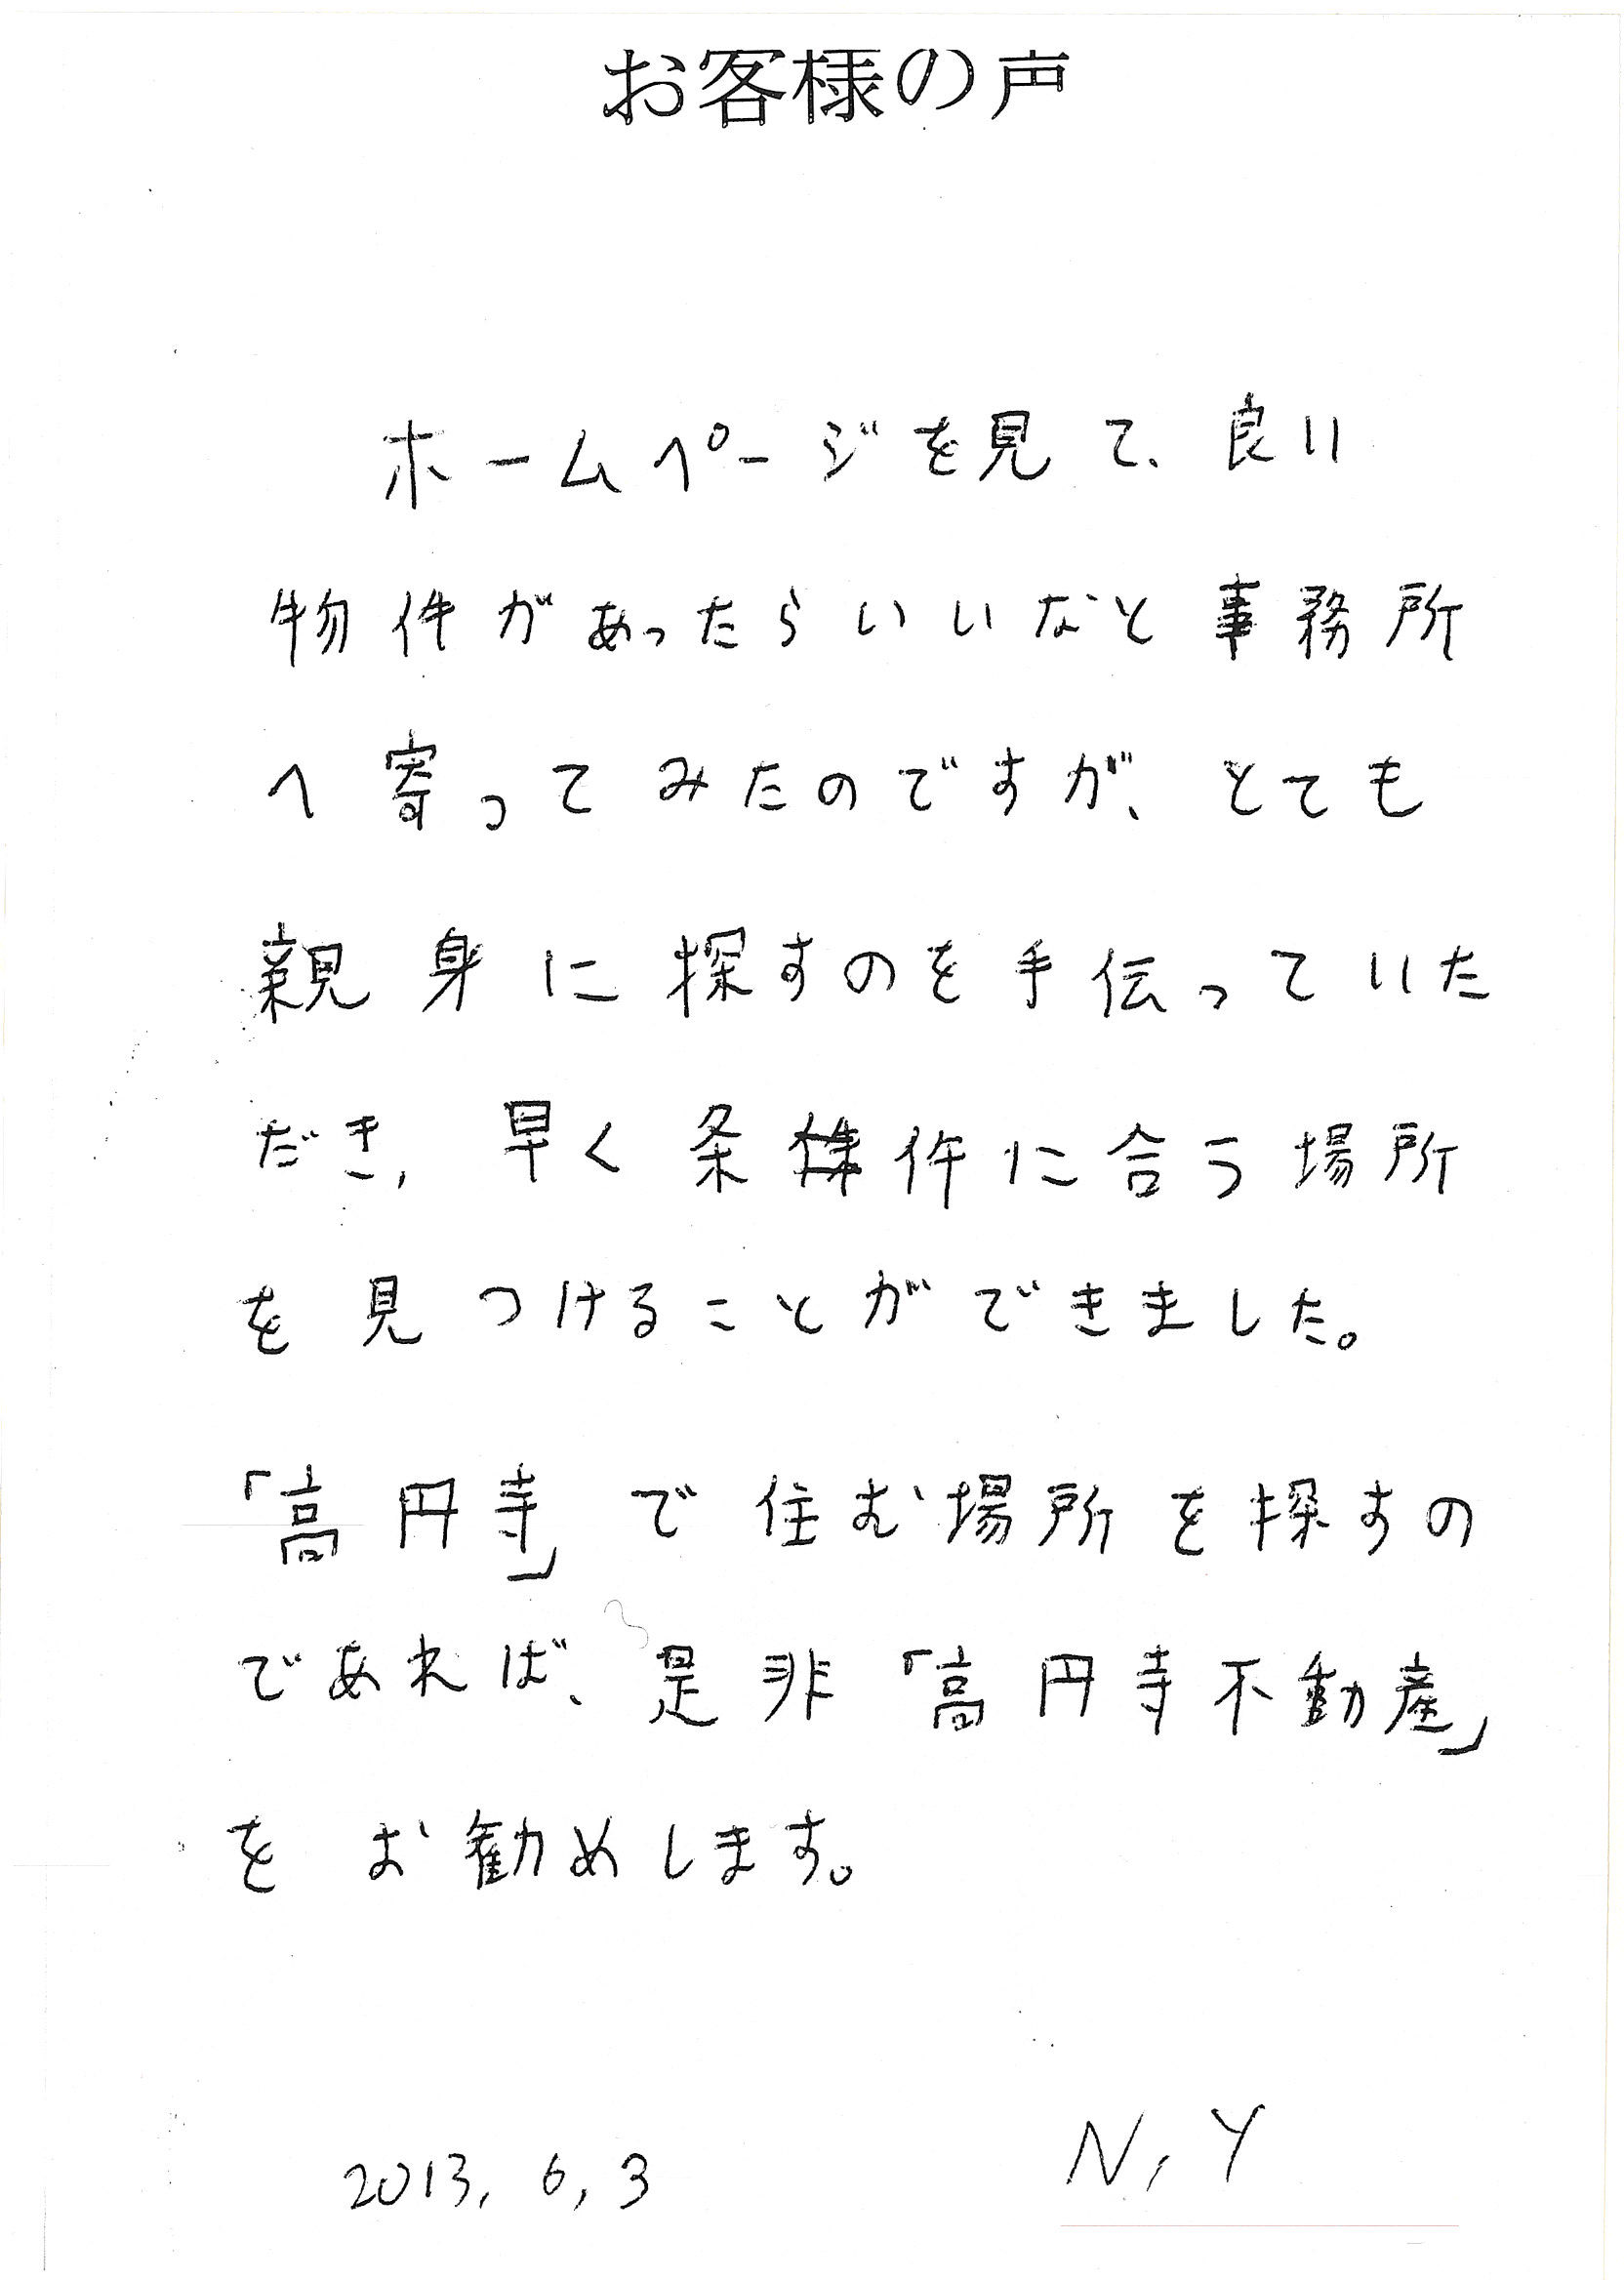 お客様の声
ホームページを見て、良い
物件があったらいいなと事務所
へ寄ってみたのですが、とても
親身に探すのを手伝っていた
だき、早く条件に合う場所
を見つけることができました。
「高円寺」で住む場所を探すの
であれば、是非「高円寺不動産」
をお勧めします。
2013, 6, 3
N, Y